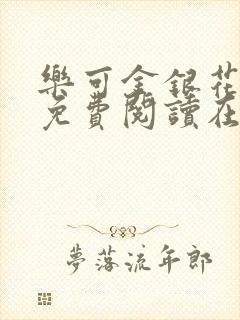 樂可金銀花
免費閱讀在
夢落流年郎